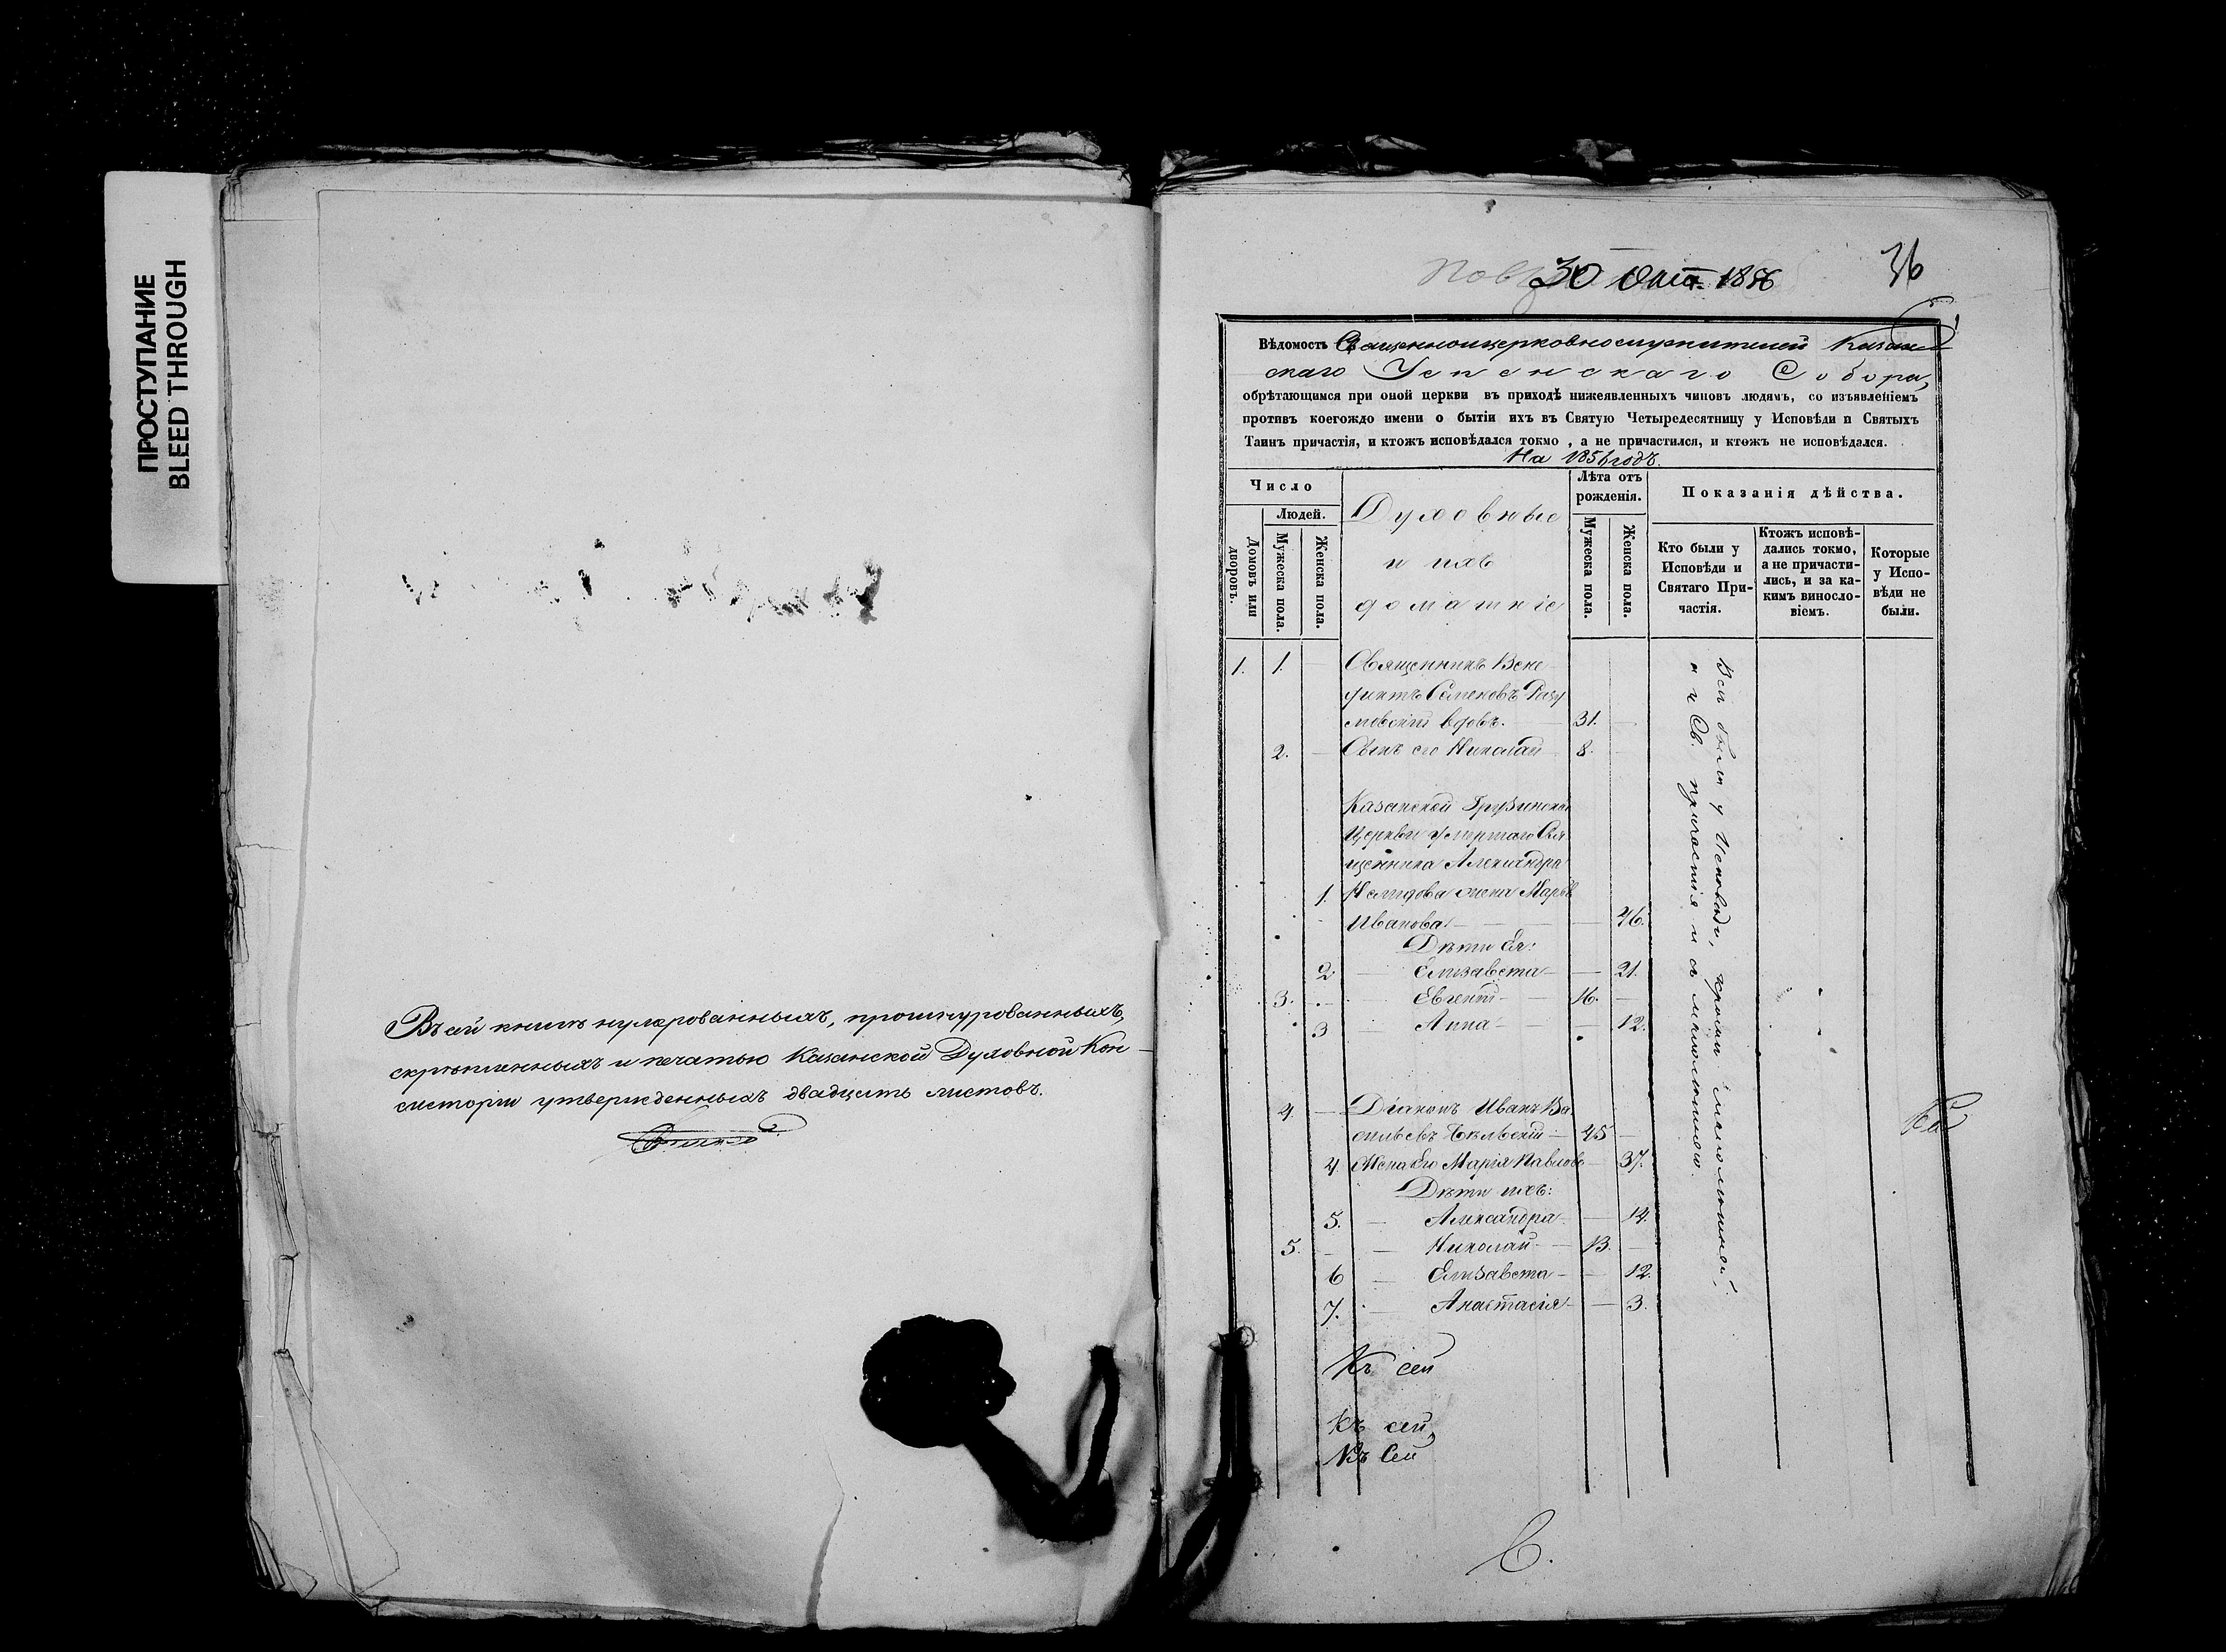 ПРОСТУПАНИЕ
BLEED THROUGH
Въ сей книгѣ нумерованныхъ, прошнурованныхъ,
скрѣпленныхъ и печатью Казанской Духовной Кон-
систоріи утвержденныхъ двадцать листовъ.
30 Окт. 1856
36
Вѣдомость Священноцерковнослужителей Казан
скаго Успенскаго Собора,
обрѣтающимся при оной церкви въ приходѣ нижеявленныхъ чиновъ людямъ, со изъявленіемъ
противъ коегождо имени о бытіи ихъ въ Святую Четыредесятницу у Исповѣди и Святыхъ
Таинъ причастія, и ктожъ исповѣдался токмо, а не причастился, и ктожъ не исповѣдался.
На 1856 годъ.
Число
Людей.
Домовъ или дворовъ.
Мужеска пола.
Женска пола.
Духовные
и ихъ
домашніе
Лѣта отъ рожденія.
Мужеска пола.
Женска пола.
Показанія дѣйства.
Кто были у Исповѣди и Святаго Причастія.
Ктожъ исповѣдались токмо, а не причастились, и за какимъ винословіемъ.
Которые у Исповѣди не были.
1. 1. — Священникъ Вене
диктъ Семеновъ
вдовъ. — 31. —
2. — Сынъ его Николай 8. —
Казанской Грузинской
Церкви умершаго Свя
щенника Александра
1. жена Марья
Иванова — — 46.
Дѣти Ея:
2 — Елизавета — — 21.
3. — Евгеній — 16. —
3 — Анна — — 12.
4. — Діаконъ Иванъ Ва
сильевъ Бѣльскій — 45 —
4 Жена Его Марія Павлова — 37.
Дѣти ихъ:
5. — Александра — 14.
5. — — Николай — 13. —
6 — Елизавета — — 12.
7. — Анастасія — — 3.
Всѣ были у Исповѣди,
и у Св. причастія
Къ сей
Къ сей,
Къ Сей